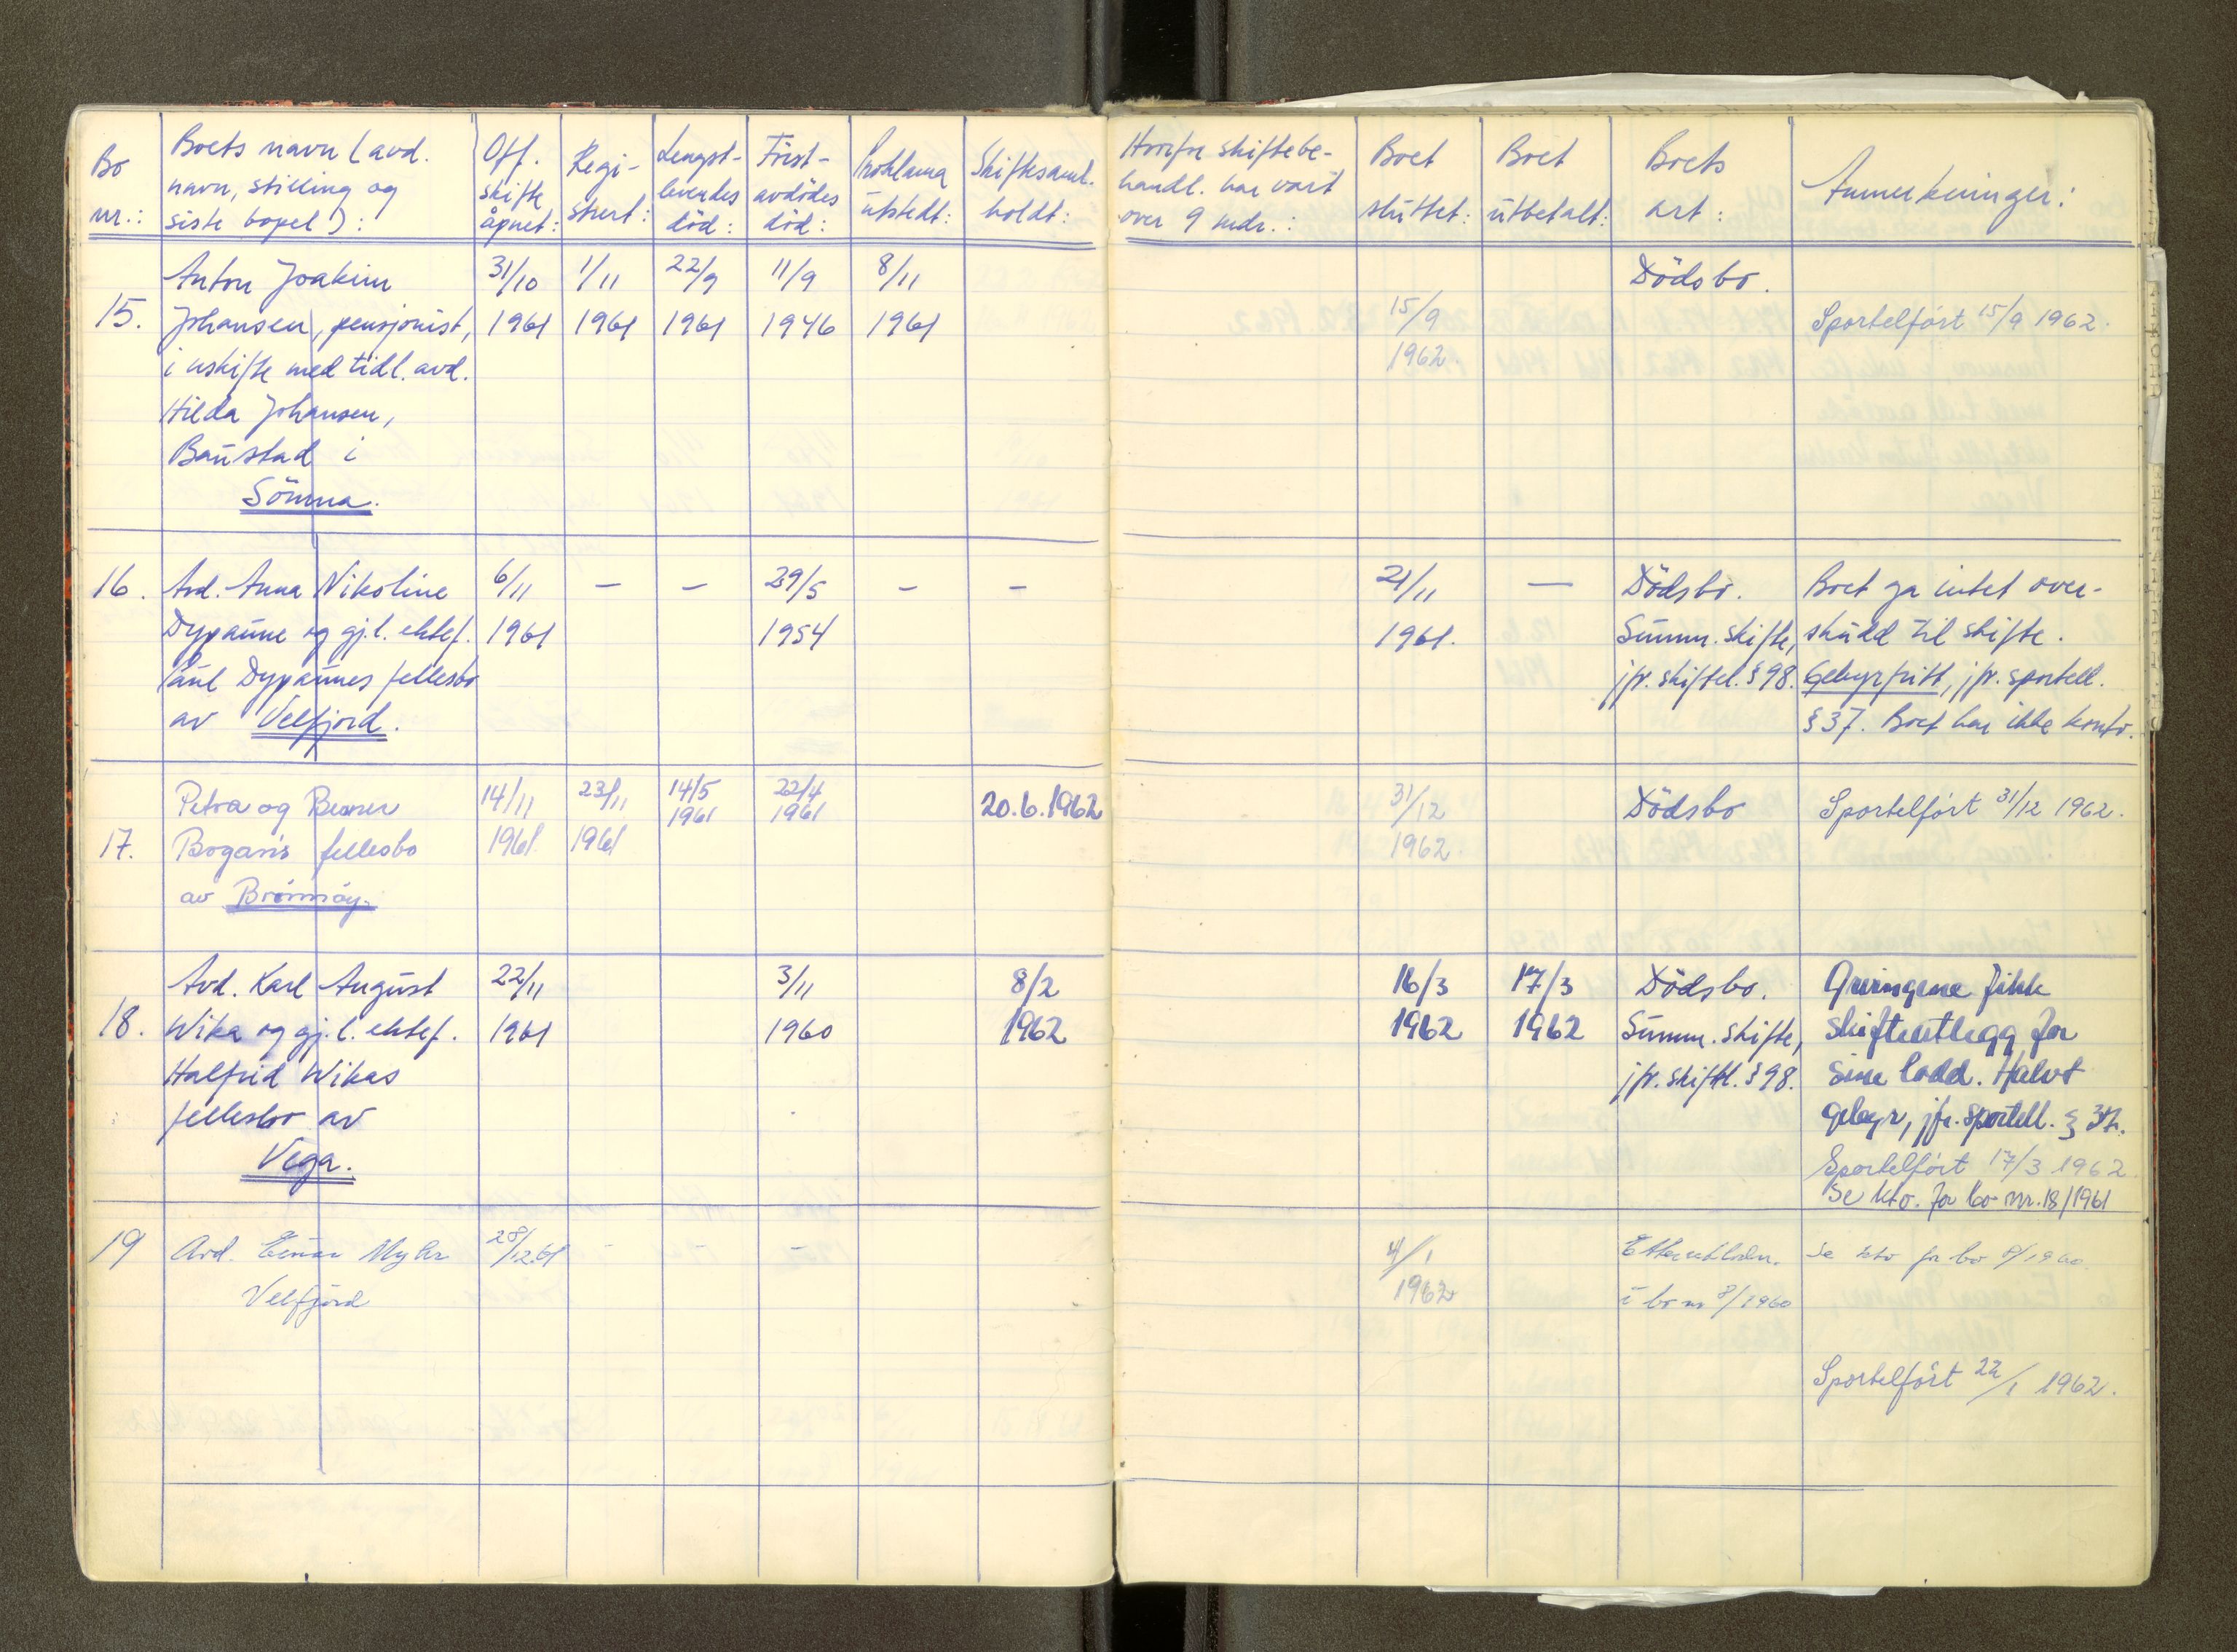 Bo
nr.:
Boets navn (avd.
navn, stilling og
siste bopel):
Off.
skifte
åpnet:
Regi-
strert:
Lengst-
levendes
död:
Först-
avdödes
död:
Proklama
utstedt:
Skiftesaml.
holdt:
Hvorfor skiftebe-
handl. har vart
over 9 mdr.:
Boet
sluttet:
Boet
utbetalt:
Boets
art:
Anmerkninger:
15.
Anton Joakim
Johansen, pensjonist,
i uskifte med tidl. avd.
Hilda Johansen,
Baustad i
Sömna.
31/10
1961
1/11
1961
22/9
1961
11/9
1946
8/11
1961
15/9
1962.
Dödsbo.
Sportelfört 15/9 1962.
16.
Avd. Anna Nikoline
Dypaune og gj.l. ektef.
Paul Dypaunes fellesbo
av Velfjord.
6/11
1961
–
–
29/5
1954
–
–
21/11
1961.
–
Dödsbo.
Summ. skifte,
jfr. skiftel. § 98.
Boet ga intet over-
skudd til skifte.
Gebyrfritt, jfr. sportell.
§ 37. Boet har ikke konto.
17.
Petra og
fellesbo
av Brönnöy.
14/11
1961
23/11
1961
14/5
1961
22/4
1961
20.6.1962
31/12
1962.
Dödsbo
Sportelfört 31/12 1962.
18.
Avd. Karl August
Wika og gj.l. ektef.
Halfrid Wikas
fellesbo av
Vega.
22/11
1961
3/11
1960
8/2
1962
16/3
1962
17/3
1962
Dödsbo.
Summ. skifte,
jfr. skiftl. § 98.
Arvingene fikk
skifteutlegg for
sine lodd. Halvt
gebyr, jfr. sportell. § 37.
Sportelfört 17/3 1962
Se kto. for bo nr. 18/1961
19
Avd. Einar Myhr
Velfjord
28/12.61
–
–
–
4/1
1962
i bo nr 8/1960
Se kto for bo 8/1960.
Sportelfört 22/1 1962.